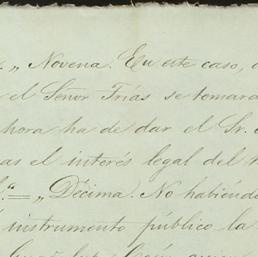 „ Novena. En este caso,
el Señor Trías se tomará
ahora ha de dar el Sr.
el interés legal del
„Décima. No habiendo
instrumento público la